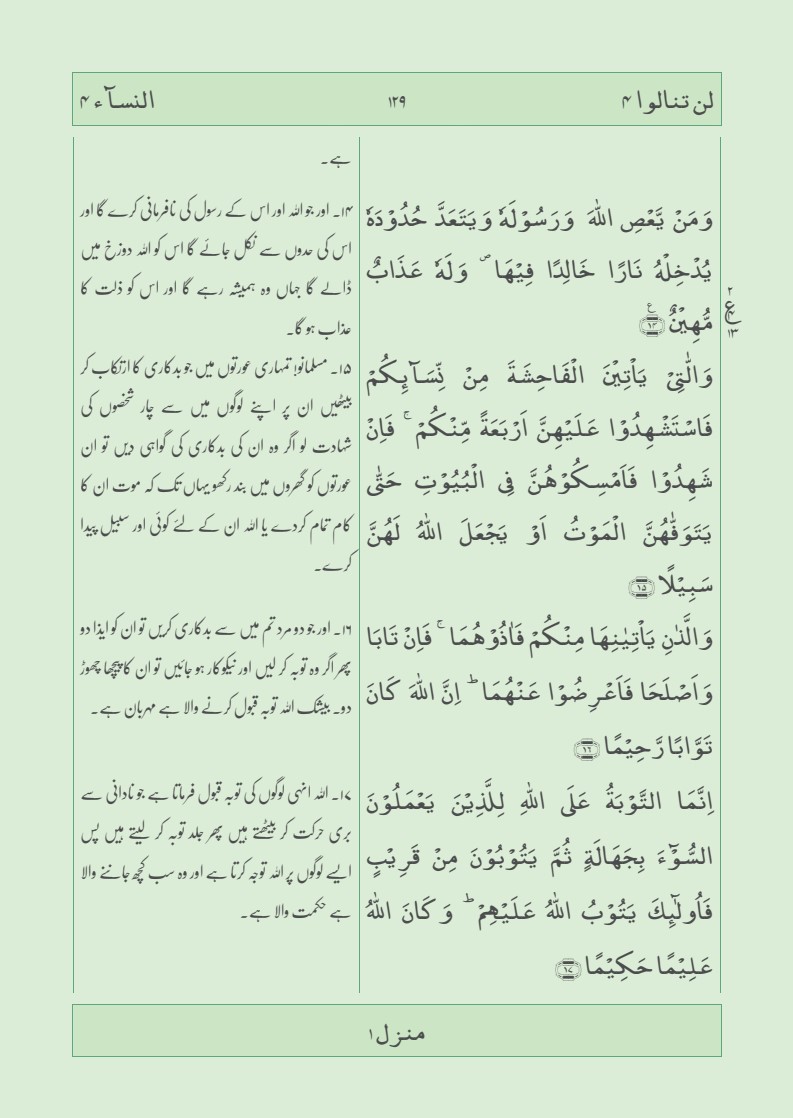 لن تنالوا ۴
۱۲۹
النسآء ۴
وَمَنْ یَّعْصِ اللّٰهَ وَرَسُوْلَهٗ وَیَتَعَدَّ حُدُوْدَهٗ
یُدْخِلْهُ نَارًا خَالِدًا فِیْهَا ۪ وَلَهٗ عَذَابٌ
مُّهِیْنٌ ۟۠ ﴿۱۴﴾
وَالّٰتِیْ یَاْتِیْنَ الْفَاحِشَةَ مِنْ نِّسَآىِٕكُمْ
فَاسْتَشْهِدُوْا عَلَیْهِنَّ اَرْبَعَةً مِّنْكُمْ ۚ فَاِنْ
شَهِدُوْا فَاَمْسِكُوْهُنَّ فِی الْبُیُوْتِ حَتّٰی
یَتَوَفّٰهُنَّ الْمَوْتُ اَوْ یَجْعَلَ اللّٰهُ لَهُنَّ
سَبِیْلًا ﴿۱۵﴾
وَالَّذٰنِ یَاْتِیٰنِهَا مِنْكُمْ فَاٰذُوْهُمَا ۚ فَاِنْ تَابَا
وَاَصْلَحَا فَاَعْرِضُوْا عَنْهُمَا ؕ اِنَّ اللّٰهَ كَانَ
تَوَّابًا رَّحِیْمًا ﴿۱۶﴾
اِنَّمَا التَّوْبَةُ عَلَی اللّٰهِ لِلَّذِیْنَ یَعْمَلُوْنَ
السُّوْٓءَ بِجَهَالَةٍ ثُمَّ یَتُوْبُوْنَ مِنْ قَرِیْبٍ
فَاُولٰٓىِٕكَ یَتُوْبُ اللّٰهُ عَلَیْهِمْ ؕ وَكَانَ اللّٰهُ
عَلِیْمًا حَكِیْمًا ﴿۱۷﴾
۲
ع
۱۳
ہے۔
۱۴۔ اور جو اللہ اور اس کے رسول کی نافرمانی کرے گا اور
اس کی حدوں سے نکل جائے گا اس کو اللہ دوزخ میں
ڈالے گا جہاں وہ ہمیشہ رہے گا اور اس کو ذلت کا
عذاب ہو گا۔
۱۵۔ مسلمانو! تمہاری عورتوں میں جو بدکاری کا ارتکاب کر
بیٹھیں ان پر اپنے لوگوں میں سے چار شخصوں کی
شہادت لو اگر وہ ان کی بدکاری کی گواہی دیں تو ان
عورتوں کو گھروں میں بند رکھو یہاں تک کہ موت ان کا
کام تمام کردے یا اللہ ان کے لئے کوئی اور سبیل پیدا
کرے۔
۱۶۔ اور جو دو مرد تم میں سے بدکاری کریں تو ان کو ایذا دو
پھر اگر وہ توبہ کر لیں اور نیکوکار ہو جائیں تو ان کا پیچھا چھوڑ
دو۔ بیشک اللہ توبہ قبول کرنے والا ہے مہربان ہے۔
۱۷۔ اللہ انہی لوگوں کی توبہ قبول فرماتا ہے جو نادانی سے
بری حرکت کر بیٹھتے ہیں پھر جلد توبہ کر لیتے ہیں پس
ایسے لوگوں پر اللہ توجہ کرتا ہے اور وہ سب کچھ جاننے والا
ہے حکمت والا ہے۔
منزل ۱